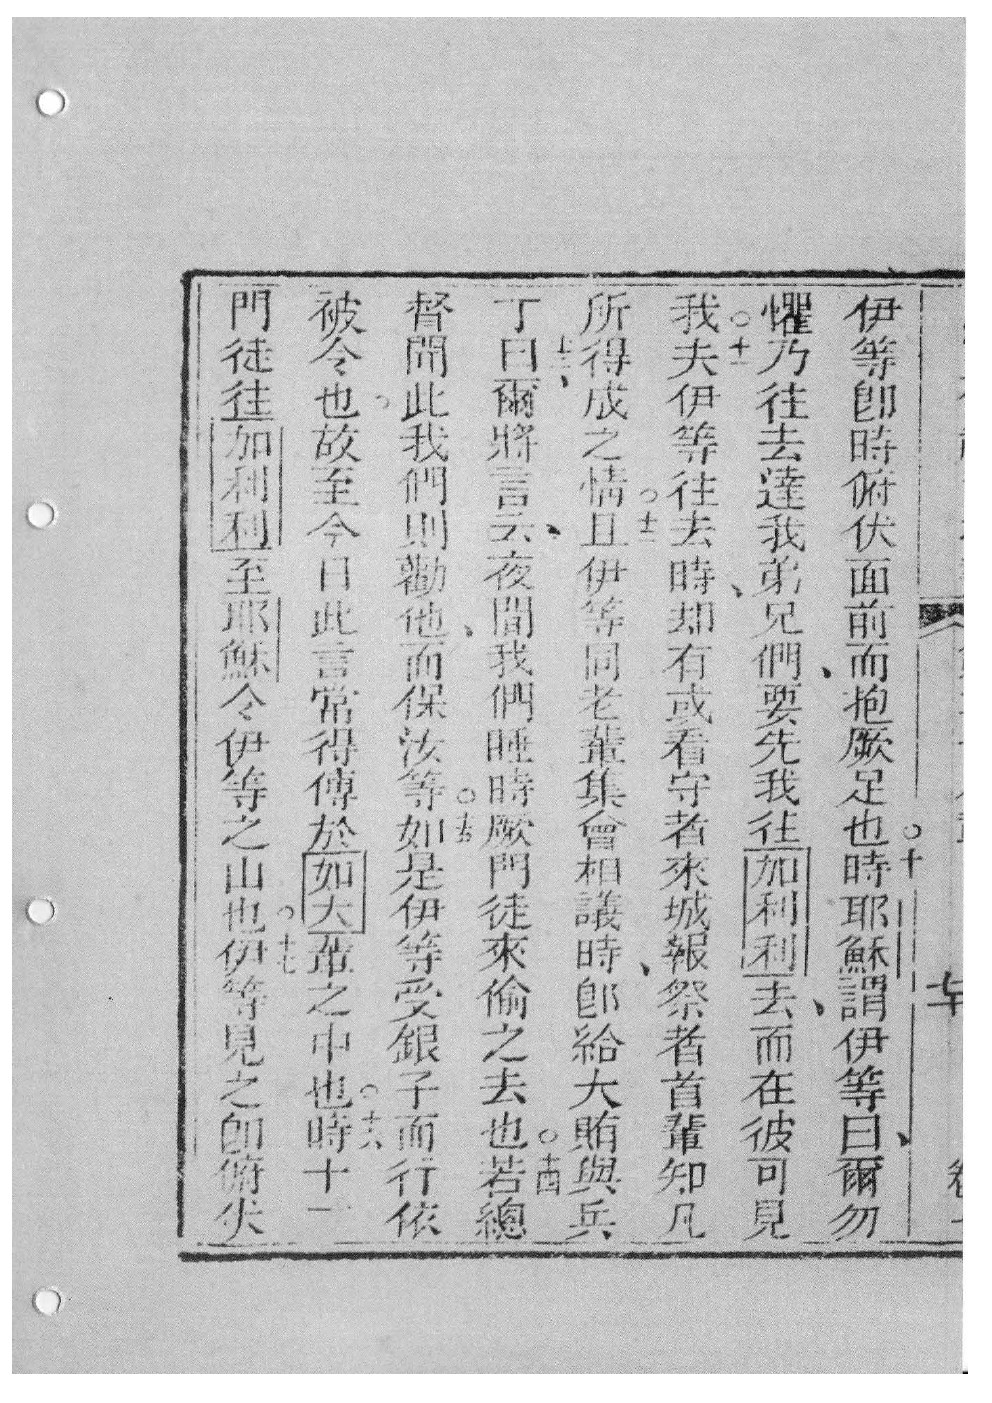 伊等卽時俯伏面前而抱厥足也○十時耶穌謂伊等曰爾勿
懼乃往去達我弟兄們要先我徃加利利去而在彼可見
我○十一夫伊等往去時却有或看守者來城報祭者首輩知凡
所得成之情○十二且伊等同老輩集會相議時卽給大賄與兵
丁十三曰爾將言云夜間我們睡時厥門徒來偷之去也○十四若總
督聞此我們則勸他而保汝等○十五如是伊等受銀子而行依
被令也故至今日此言常得傳於如大輩之中也○十六時十一
門徒徃加利利至耶穌令伊等之山也○十七伊等見之卽俯伏